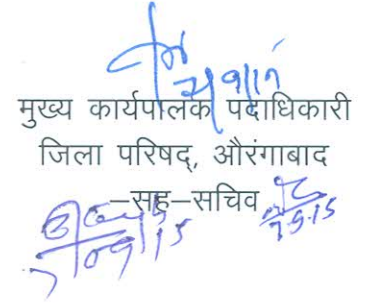 मुख्य कार्यपालक पदाधिकारी
जिला परिषद्, औरंगाबाद
–सह–सचिव